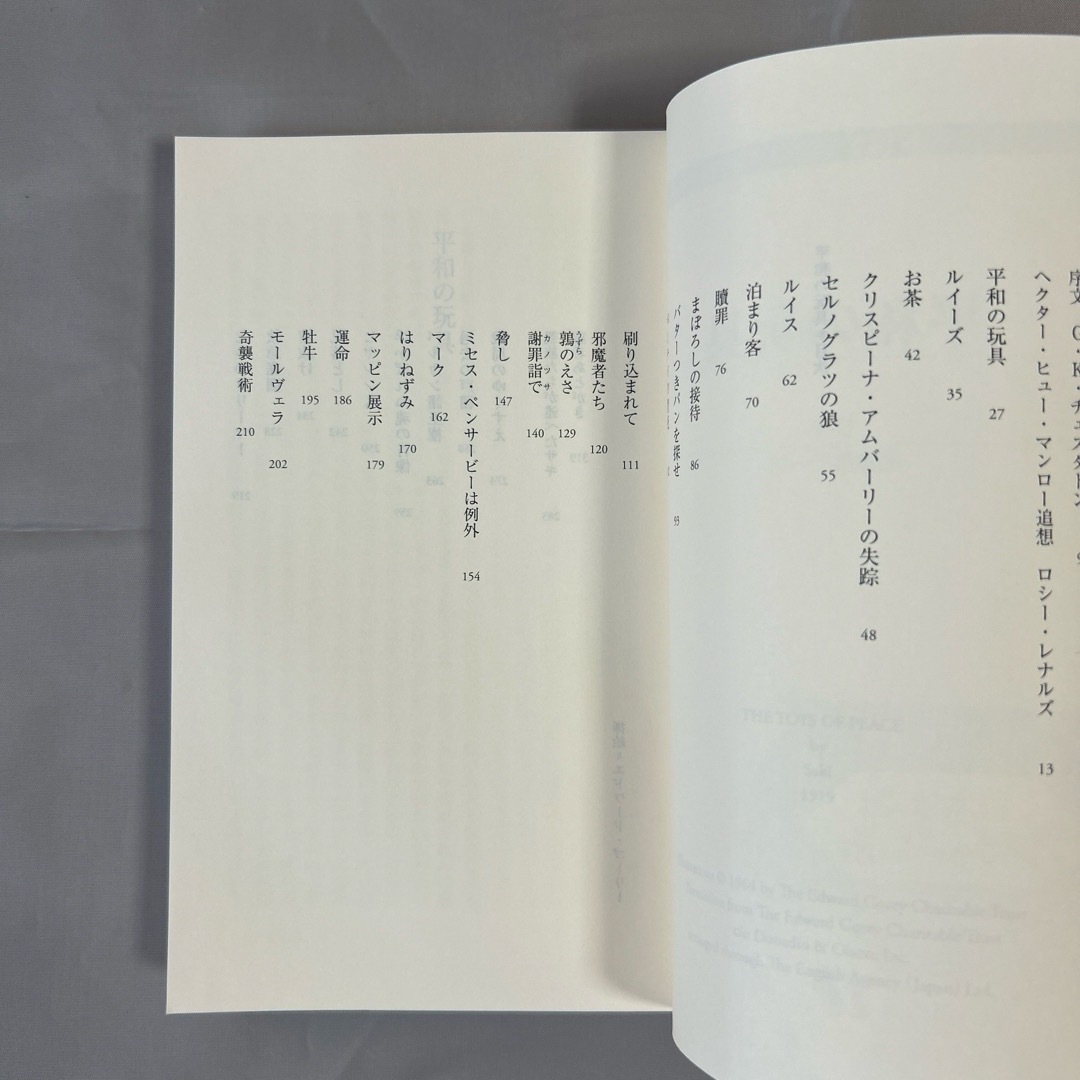 序文 G・K・チェスタトン
ヘクター・ヒュー・マンロー追想 ロシー・レナルズ 13
平和の玩具 27
ルイーズ 35
お茶 42
クリスピーナ・アムバーリーの失踪 48
セルノグラツの狼 55
ルイス 62
泊まり客 70
贖罪 76
まぼろしの接待 86
バターつきパンを探せ 93
刷り込まれて 111
邪魔者たち 120
鶉のえさ 129
うずら
謝罪詣で 140
カノッサ
脅し 147
ミセス・ペンサービーは例外 154
マーク 162
はりねずみ 170
マッピン展示 179
運命 186
牡牛 195
モールヴェラ 202
奇襲戦術 210